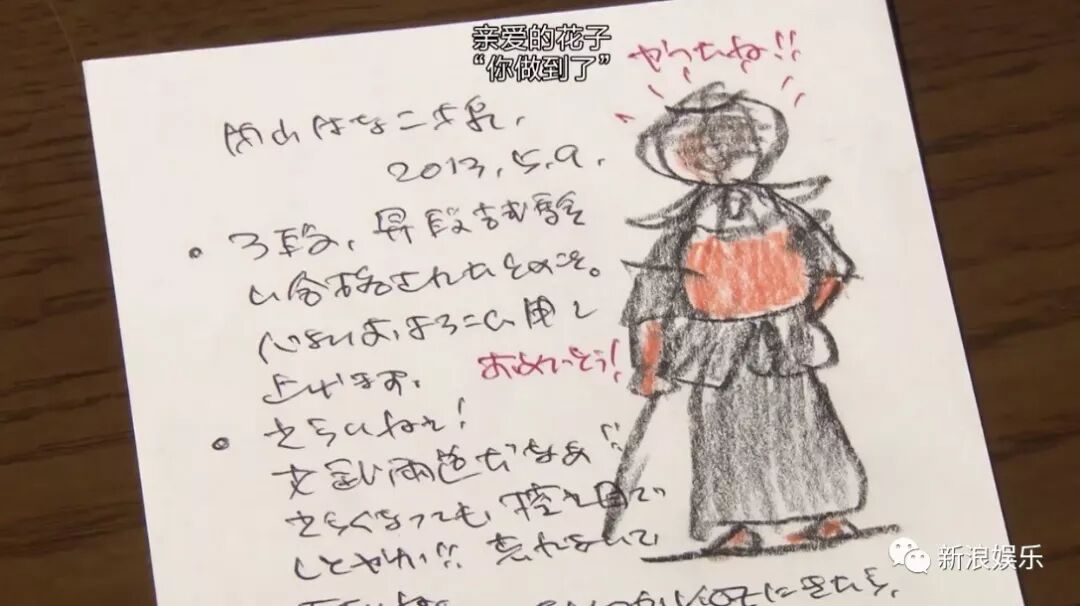 亲爱的花子
“你做到了”
やったね!!
2013.5.9.
・3段、昇段試験
に合格されたとのこと。
心よりおよろこび申し
上げます。
おめでとう!
・えらいねえ!
文武両道だなあ!!
えらくなっても、控え目で
しとやか!! 忘れないで
新浪娱乐